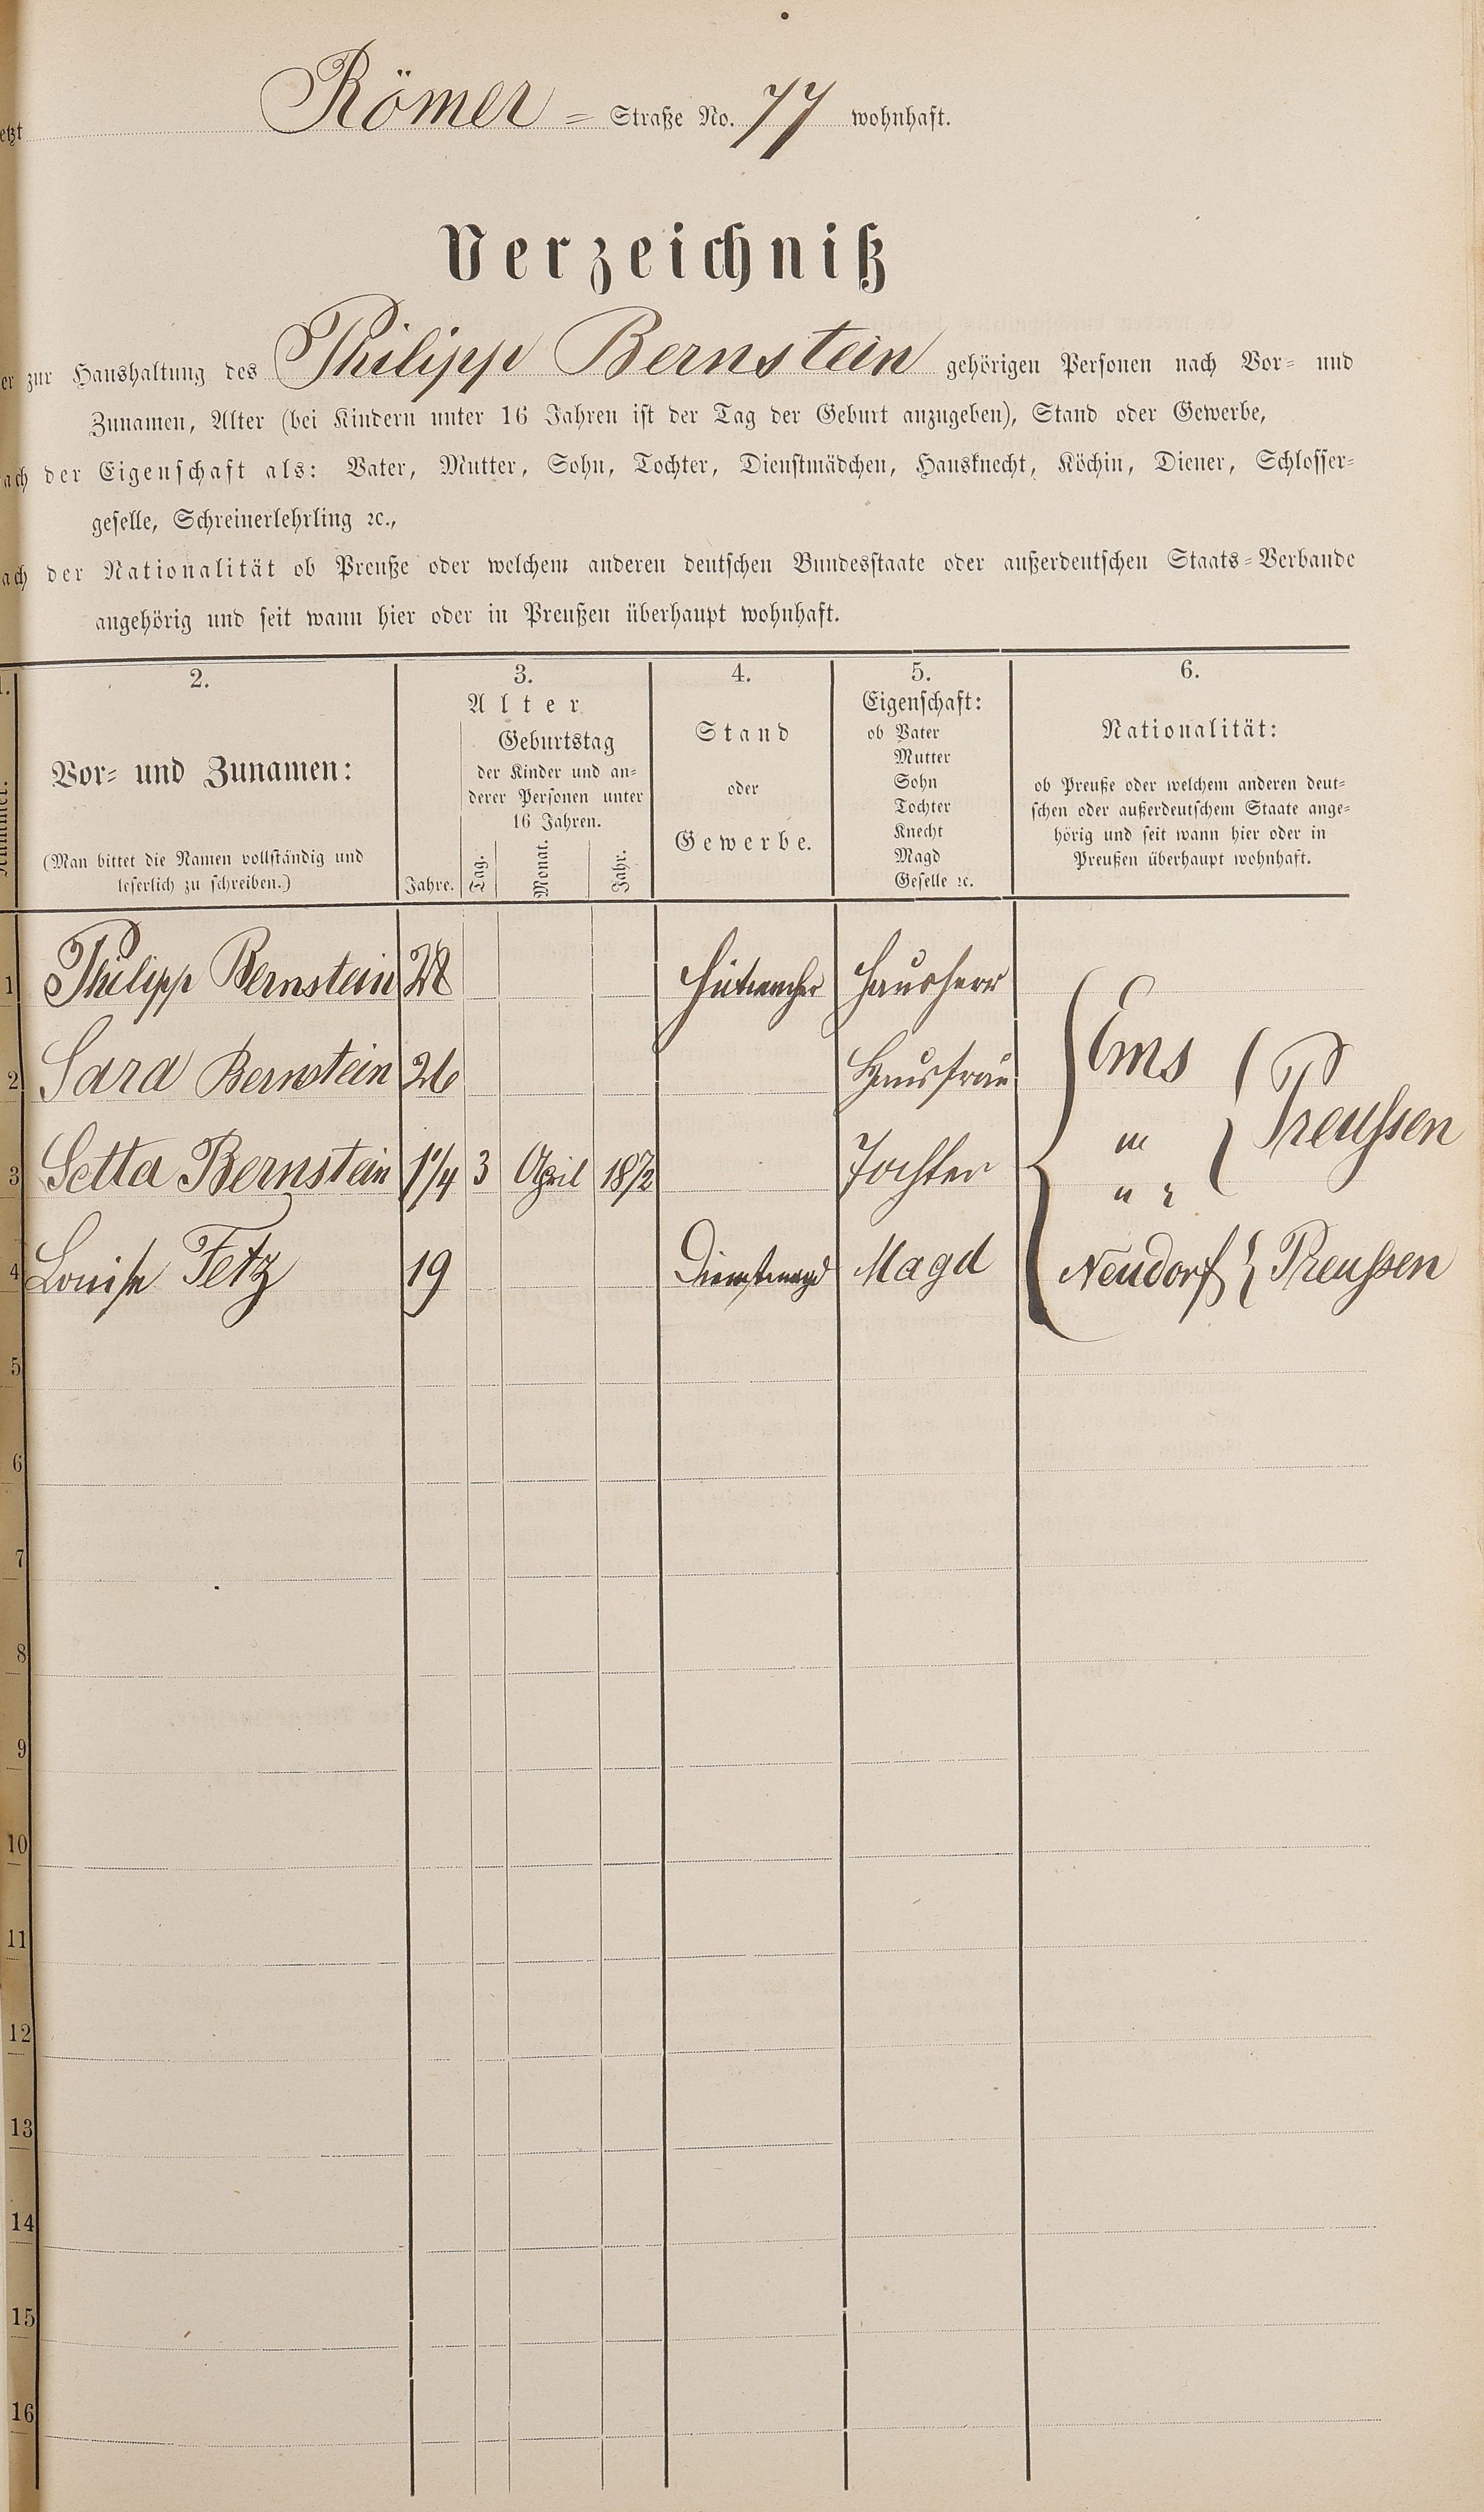 etzt Römer = Straße No. 77 wohnhaft.
Verzeichniß
er zur Haushaltung des Philipp Bernstein gehörigen Personen nach Vor- und
Zunamen, Alter (bei Kindern unter 16 Jahren ist der Tag der Geburt anzugeben), Stand oder Gewerbe,
ach der Eigenschaft als: Vater, Mutter, Sohn, Tochter, Dienstmädchen, Hausknecht, Köchin, Diener, Schlosser-
geselle, Schreinerlehrling ꝛc.,
ach der Nationalität ob Preuße oder welchem anderen deutschen Bundesstaate oder außerdeutschen Staats-Verbande
angehörig und seit wann hier oder in Preußen überhaupt wohnhaft.
1.
Nummer.
2.
Vor- und Zunamen:
(Man bittet die Namen vollständig und
leserlich zu schreiben.)
3.
Alter
Geburtstag
der Kinder und an-
derer Personen unter
16 Jahren.
Jahre. Tag. Monat. Jahr.
4.
Stand
oder
Gewerbe.
5.
Eigenschaft:
ob Vater
Mutter
Sohn
Tochter
Knecht
Magd
Geselle ꝛc.
6.
Nationalität:
ob Preuße oder welchem anderen deut-
schen oder außerdeutschem Staate ange-
hörig und seit wann hier oder in
Preußen überhaupt wohnhaft.
1 Philipp Bernstein 28 Hutmacher Hausherr
2 Sara Bernstein 26 Hausfrau Ems Preußen
3 Setta Bernstein 1 1/4 3 April 1872 Tochter " "
4 Louise Fetz 19 Dienstmagd Magd Neudorf Preußen
5
6
7
8
9
10
11
12
13
14
15
16